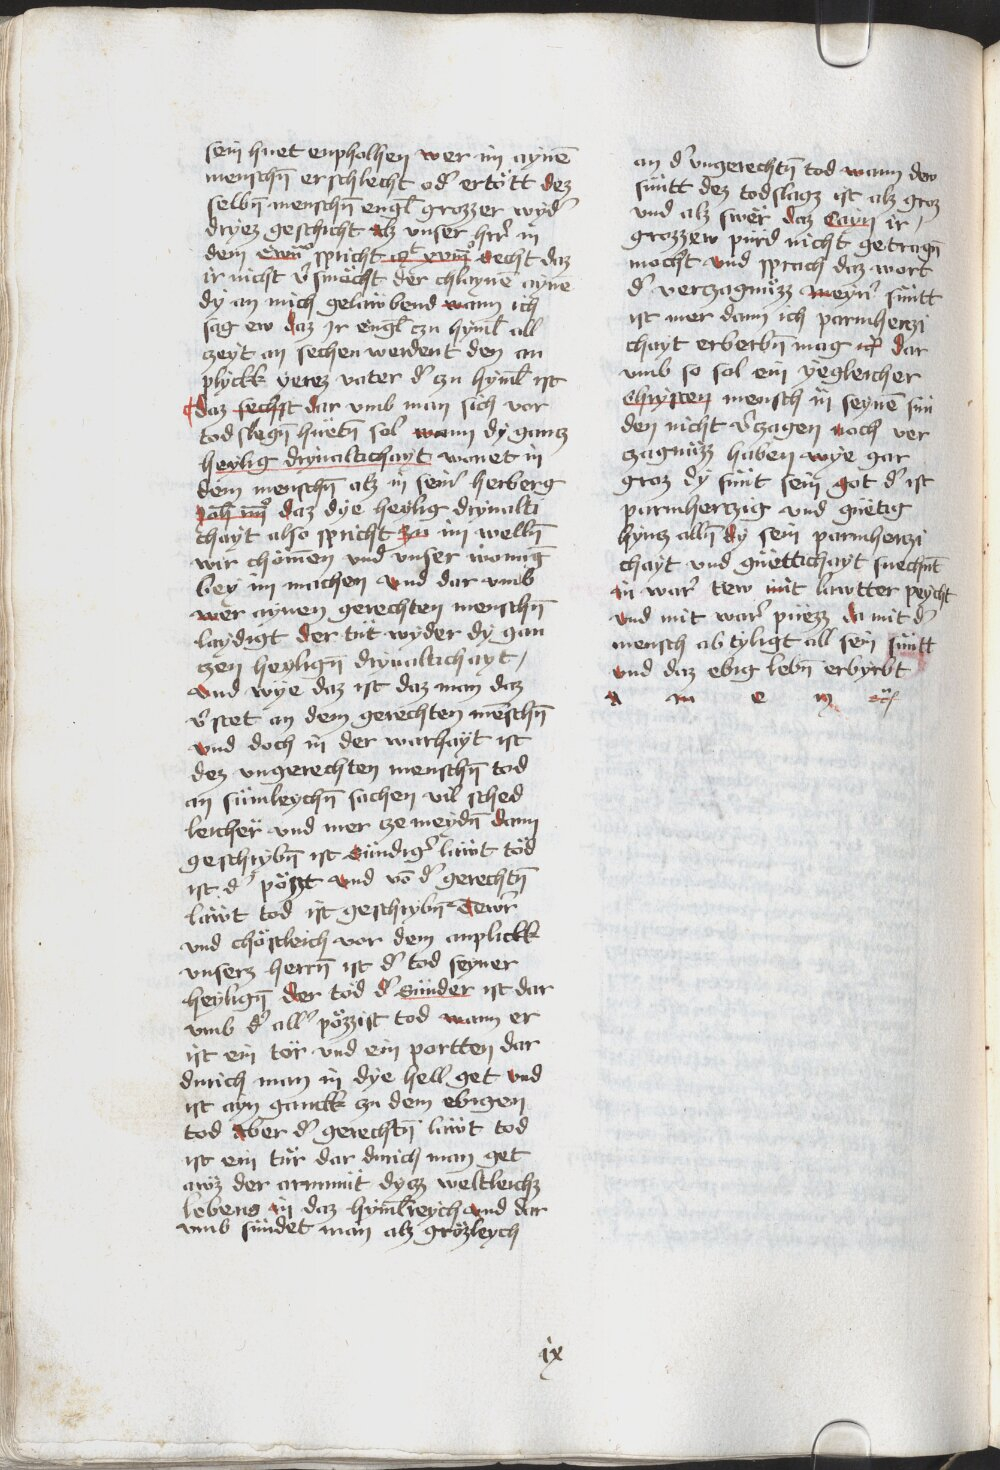 sein huet enpholhen wer im aynē
menschn̄ erschlecht od' ertött dez
selbn̄ menschn̄ engl̄ grozzer wyd'
dryez geschicht alz unser hr̄r in
dem spricht secht daz
ir nicht v'smächt der chlaynē aynē
dy an mich gelawbend wann ich
sag ew daz Ir engl̄ czu hyml̄ all
czeyt an sechen werdent den an
plyckk yerez vater d' czu hyml̄ ist
daz sechst dar umb man sich vor
tod slegn̄ hüetn̄ sol wann dy gancz
heylig dryualtichayt wonet in
dem menschn̄ alz in sein' herberg
daz dye heylig dryualti
chayt also spricht zu im welln̄
wir chömen und unser wonūg
bey im machen und dar umb
wer aynen gerechten menschn̄
laydigt der tüt wyder dy gan
czen heylign̄ dryualtichayt /
und wye daz ist daz man daz
v'stet an dem gerechten mēschn̄
und doch in der warhayt ist
dez ungerechten menschn̄ tod
an sümleychn̄ sachen vil sched
leicher und mer cze meydn̄ dann
geschrybn̄ ist Sündig' läwt töd
ist d' pözzt und vō d' gerechtn̄
läwt tod ist geschrybn̄ Tewr
und chöstleich vor dem anplickk
unserz herrn̄ ist d' tod seyner
heylign̄ der töd d' Sünder ist dar
umb d' all' pözzist tod wann er
ist ein tör und ein portten dar
durich man in dye hell get und
ist ayn ganckk zu dem ebigen
tod Aber d' gerechtn̄ läwt tod
ist ein tür dar durich man get
awz der armmüt dycz weltleichz
lebens in daz hyml̄reych und dar
umb sündet man alz grözleych
an d' ungerechtn̄ tod wann dew
sünt dez todslagz ist alz groz
und alz swer daz Cayn ir /
grozzew pürd nicht getragn̄
mocht und sprach daz wort
d' verczagnüzz meyn' sünt
ist mer dann ich parmherczi
chayt erberbn̄ mag dar
umb so sol ein yegleicher
Chrysten mensch in seynē sün
den nicht v'czagen noch ver
czagnüzz haben wye gar
groz dy sünt sein got d' ist
parmherczig und güetig
hyncz alln̄ dy sein parmherczi
chayt und güettichayt suechnt
in war' rew mit lawtter peycht
und mit war' puezz da mit d'
mensch ab tyligt all sein sünt
und daz ebig lebn̄ erbyrbt
A m e n
ix